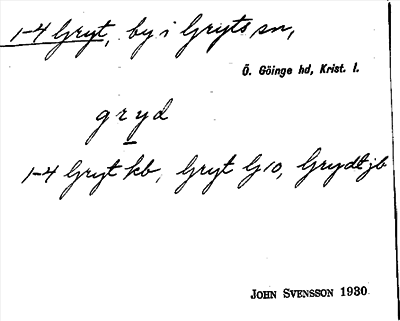 1-4 Gryt, by i Gryts sn,
Ö. Göinge hd, Krist. l.
gryd
1-4 Gryt kb, Gryt G10, Grydt jb
JOHN SVENSSON 1930